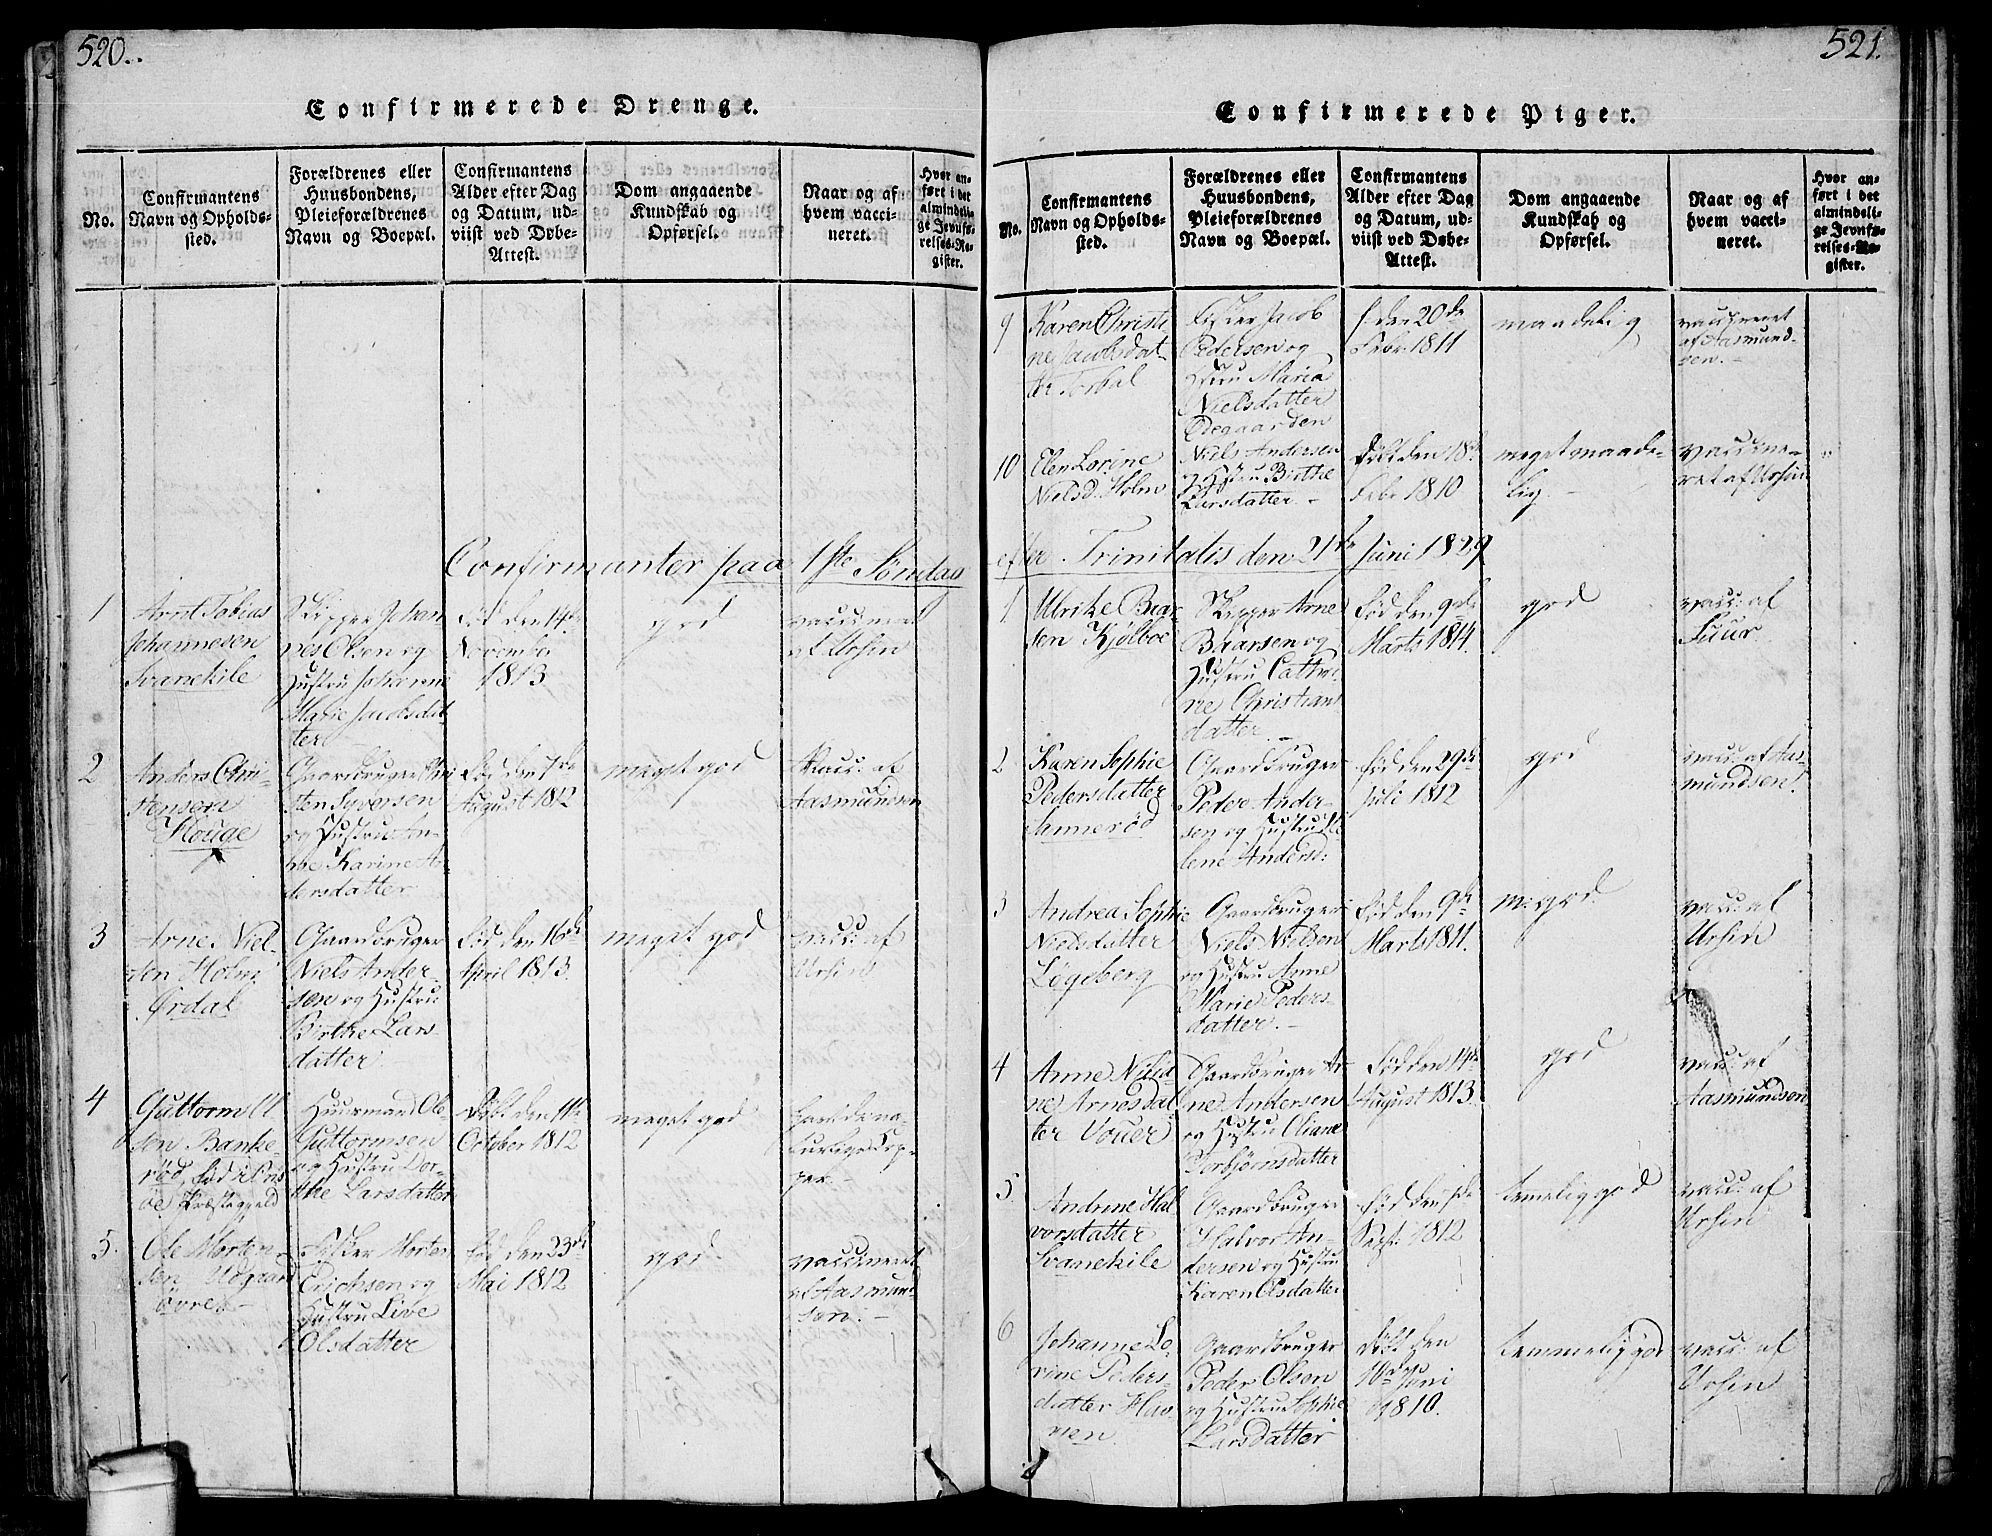 520.
Confirmerede Drenge.
No.
Confirmantens
Navn og Opholds-
sted.
Forældrenes eller
Huusbondens,
Pleieforældrenes
Navn og Boepæl.
Confirmantens
Alder efter Dag
og Datum, ud-
viist ved Døbe-
Attest.
Dom angaaende
Kundskab og
Opførsel.
Naar og af
hvem vacci-
neret.
Hvor an-
ført i det
almindeli-
ge Jevnfø-
relses-Re-
gister.
Confirmanter paa 1ste Søndag
1
Arnt Tobias
Johannesen
Svanekile
Skipper Johan
nes Olsen og
Hustru Johanne
Marie Jacobsdat
ter
Fød den 14de
November
1813
god
af Ursin
2
Anders Chri-
stensen
Houge
Gaardbruger Chri
sten Syversen
og Hustru An-
ne Karine An
dersdatter
Fød den 7de
August 1812
meget god
Vacc: af
Aasmundsen
3
Arne Niel-
sen Holm
Ørdal
Gaardbruger
Niels Ander-
sen og Hustru
Birthe Lars
datter
Fød den 16de
April 1813.
meget god
vacc: af
Ursin
4
Guttorm Ol
sen Banke-
rød, fød i
Præstegjeld
Huusmand Ole
Guttormsen
og Hustru Dor-
the Larsdatter
Døbt den 11te
October 1812
meget god
havt de na-
turlige Kop-
per
5.
Ole Morten-
sen Udgaard
øvre
Fisker Morten
Erichsen og
Hustru Live
Olsdatter
Fød den 23de
Mai 1812
god
vaccineret
af Aasmund
sen.
521.
Confirmerede Piger.
No.
Confirmantens
Navn og Opholds-
sted.
Forældrenes eller
Huusbondens,
Pleieforældrenes
Navn og Boepæl.
Confirmantens
Alder efter Dag
og Datum, ud-
viist ved Døbe-
Attest.
Dom angaaende
Kundskab og
Opførsel.
Naar og af
hvem vacci-
neret.
Hvor an-
ført i det
almindeli-
ge Jevnfø-
relses-Re-
gister.
9
Karen Christi-
ne Jacobsdat-
ter Torbal
Fisker Jacob
Pedersen og
Hstru Maria
Nielsdatter
Ødegaarden
f: den 20de
Febr: 1811
maadelig
vaccineret
af Aasmund-
sen.
10
Elen Lorine
Nielsd. Holm
Niels Andersen
og Hstru Birthe
Larsdatter.
Døbt den 18de
Febr 1810
meget maade-
lig.
vaccine-
ret af Ursin
efter Trinitatis den 21de Juni 1829
1
Ulrike Baar
sen Kjølboe
Skipper Arne
Baarsen og
Hustru Cathri
ne Christians
datter
Fød den 9de
Marts 1814.
god
vacc: af
Fuur
2
Karen Sophie
Pedersdatter
Sannerød
Gaardbruger
Peder Ander-
sen og Hustru
lene Andersd:
Fød den 29de
Juli 1812
god
vacc: af Aas
mundsen
3
Andrea Sophie
Nielsdatter
Løgeberg
Gaardbruger
Niels Nielsen
og Hustru Anne
Marie Peders-
datter.
Fød den 9de
Marts 1811.
m: god.
vacc: af
Ursin
4
Anne
ne Arnesdat
ter Vouer
Gaardbruger Ar
ne Andersen
og Hustru Oliane
Torbjørnsdatter
Fød den 14de
August 1813.
god
vacc: af
Aasmundsen
5
Andrine Hal
vorsdatter
Svanekile
Gaardbruger
Halvor An-
dersen og Hustru
Karen Olsdatter
Fød den 1de
Sept: 1812
temelig god
vacc: af
Ursin
6
Johanne Lo-
rine Peders-
datter Hav-
nen
Gaardbruger
Peder Olsen
og Hustrue Sophie
Larsdatter
Døbt den
10de Juni
1810.
temmelig god
vacc: af
Ursin